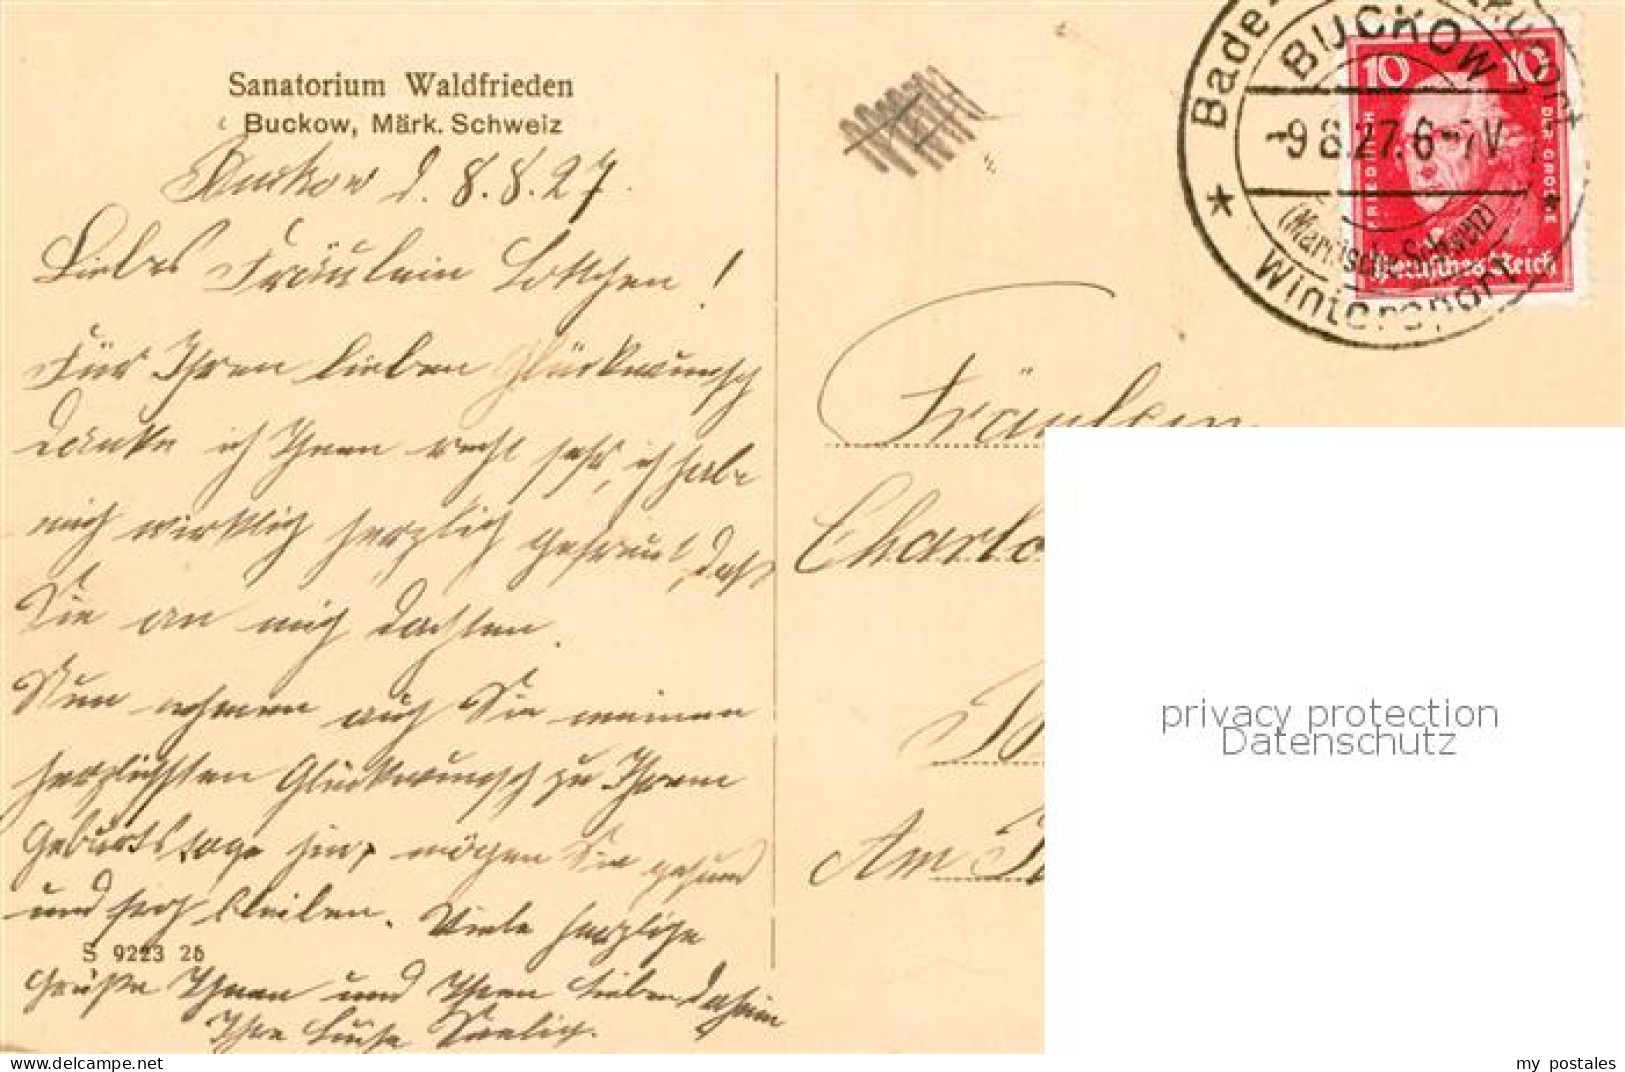 Sanatorium Waldfrieden
Buckow, Märk. Schweiz
Buckow d. 8.8.27.
Liebes Fräulein Lottchen!
Für Ihren lieben Glückwunsch
danke ich Ihnen recht sehr, ich habe
mich wirklich herzlich gefreut, daß
Sie an mich dachten.
Nun nehmen auch Sie meinen
herzlichsten Glückwunsch zu Ihrem
Geburtstage hin, mögen Sie gesund
und froh bleiben. Viele herzliche
S 9223 26
Grüße Ihnen und Ihren Lieben daheim
Ihre Luise
Bade-
BUCKOW
-9 8.27.6-7V
(Märkische Schweiz)
Wintersport
10 10
FRIEDRICH DER GROSSE
Deutsches Reich
Fräulein
Charlo
Am
privacy protection
Datenschutz
my postales